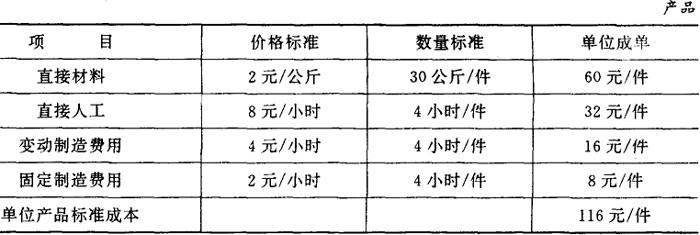 产品
项 目 价格标准 数量标准 单位成单
直接材料 2元/公斤 30公斤/件 60元/件
直接人工 8元/小时 4小时/件 32元/件
变动制造费用 4元/小时 4小时/件 16元/件
固定制造费用 2元/小时 4小时/件 8元/件
单位产品标准成本 116元/件